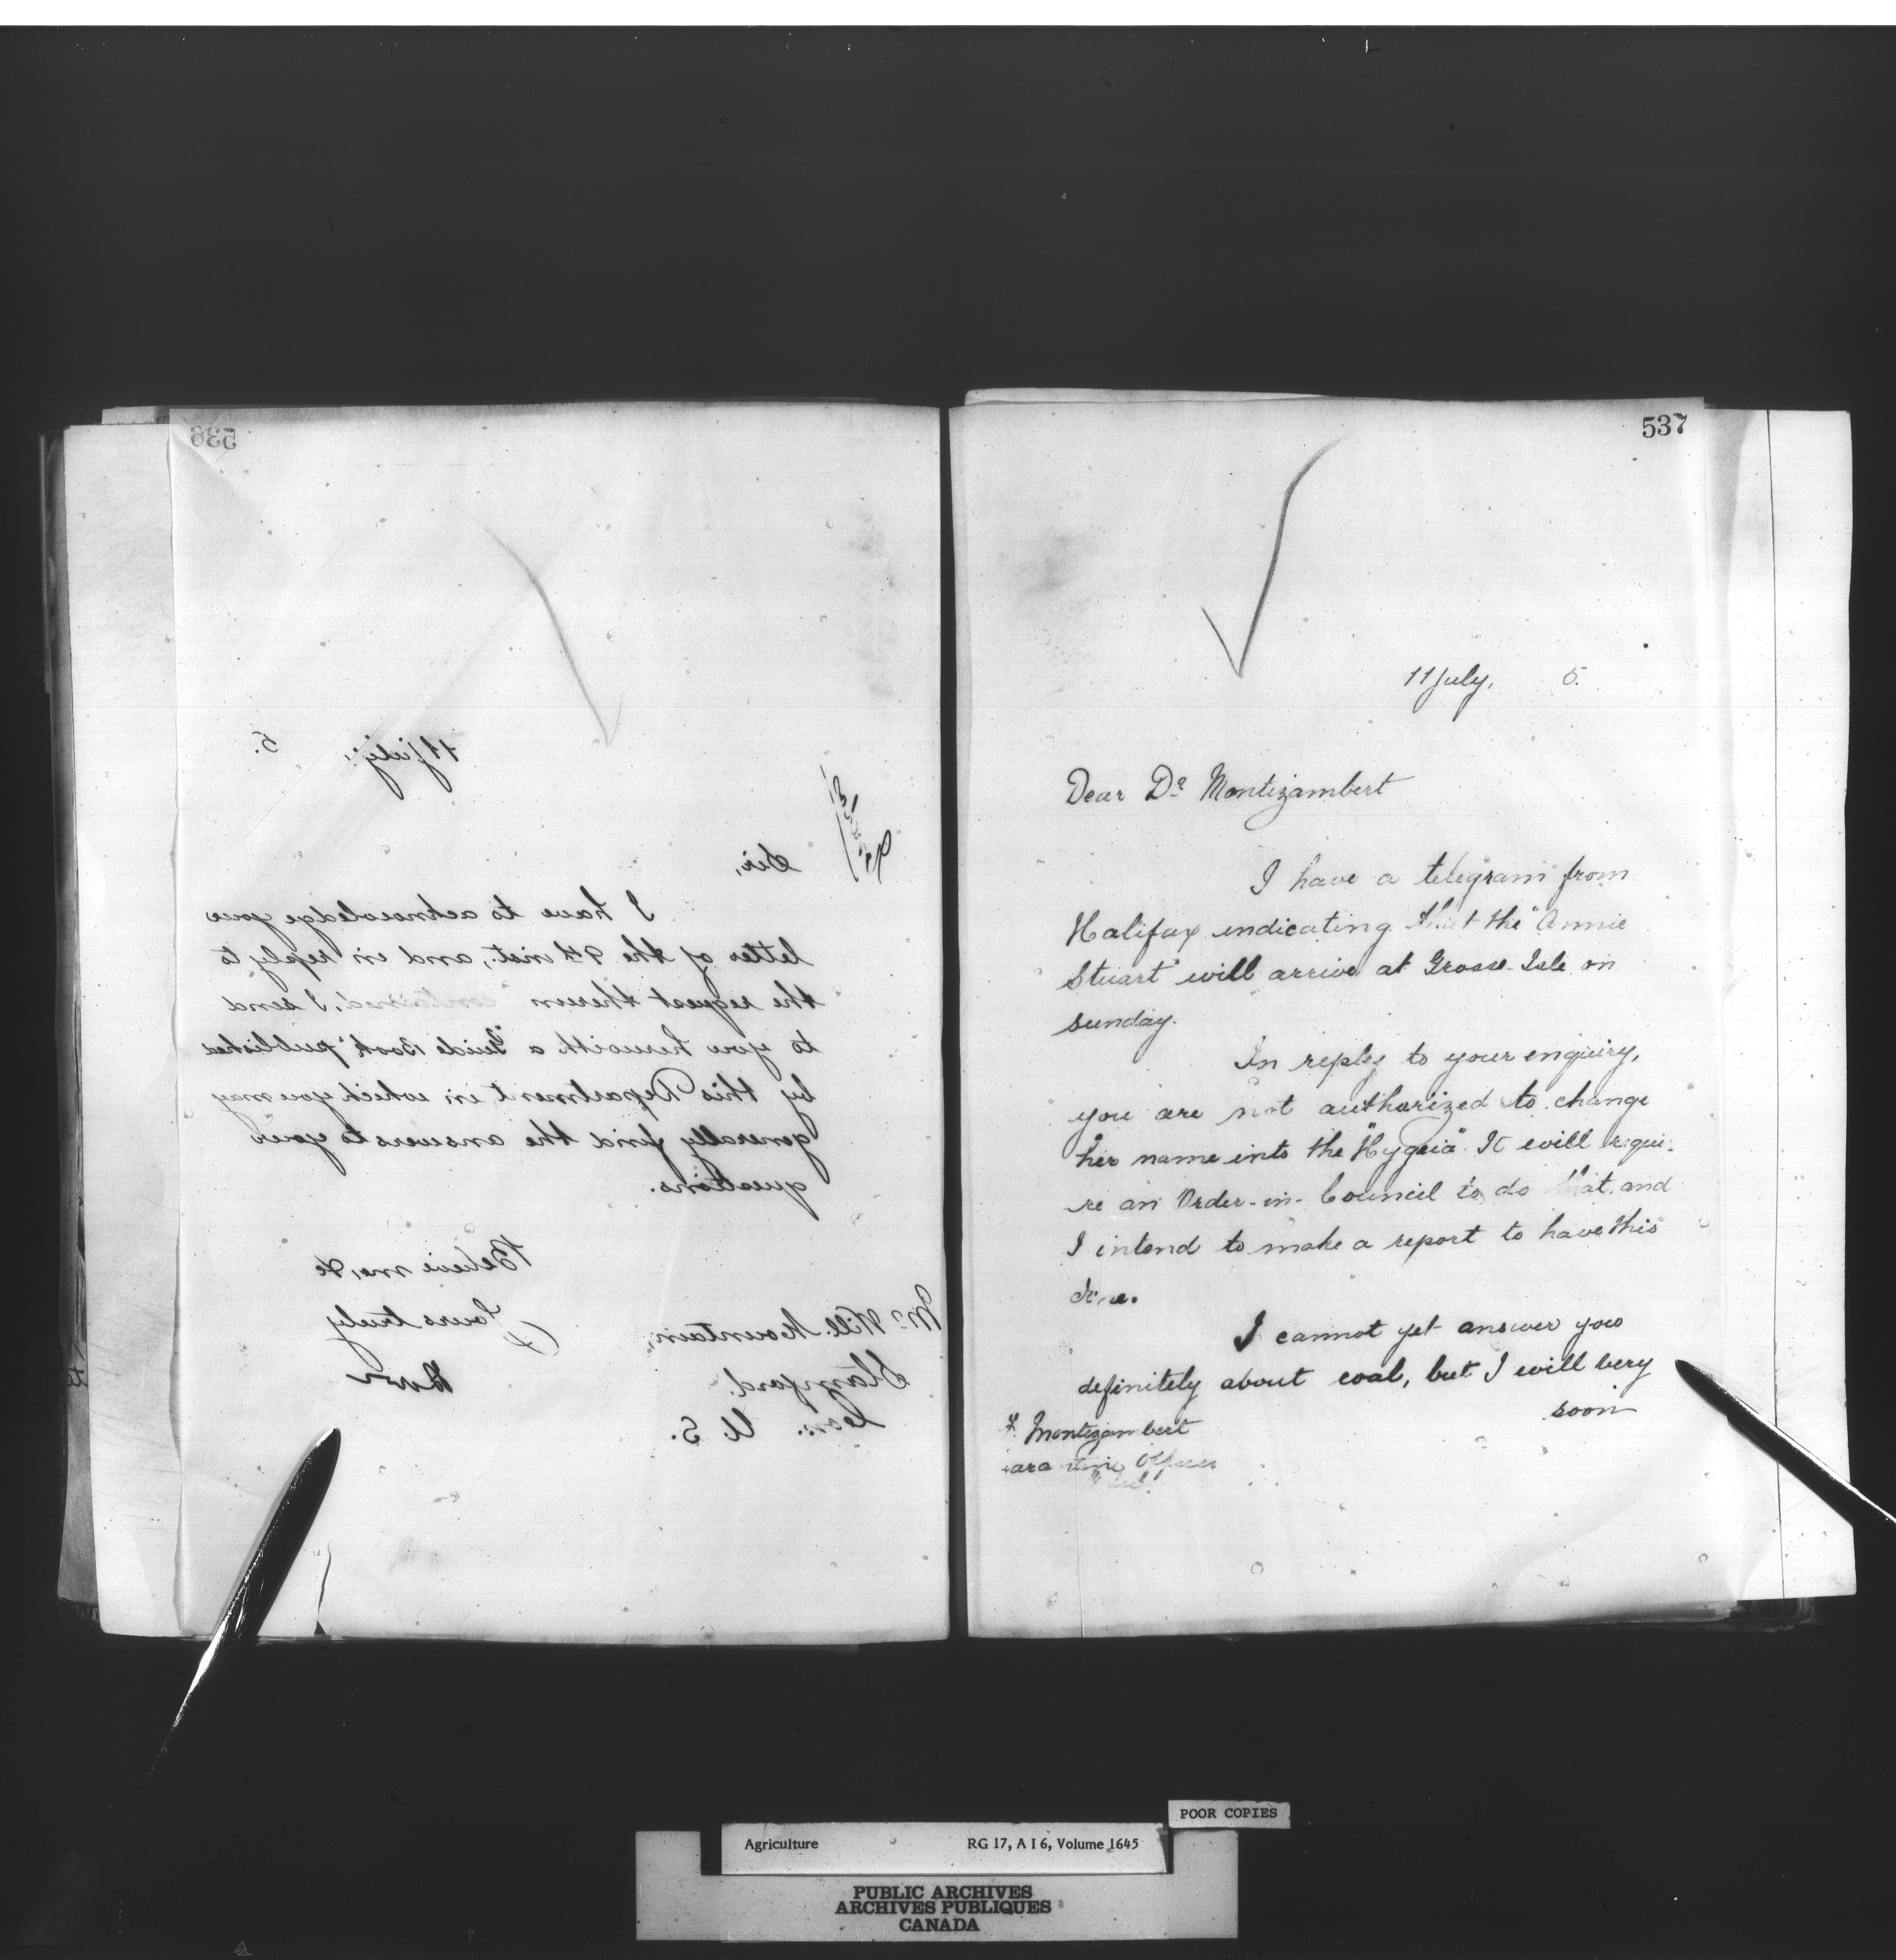 536
11 July, 5.
Sir,
I have to acknowledge your
letter of the 9th inst., and in reply to
the request therein contained, I send
to you herewith a "Guide Book" published
by this Department in which you may
generally find the answers to your
questions.
Believe me, &c
Yours truly
Mr Will. Mountain,
Stamford.
Con. U. S.
537
11 July, 5.
Dear Dr Montizambert
I have a telegram from
Halifax indicating that the "Annie
Stuart" will arrive at Grosse Isle on
sunday.
In reply to your enquiry,
you are not authorized to change
her name into the "Hygeia". It will requi-
re an Order-in-Council to do that, and
I intend to make a report to have this
done.
I cannot yet answer you
definitely about coal, but I will very
soon
F. Montizambert
arantine Officer
POOR COPIES
Agriculture RG 17, A I 6, Volume 1645
PUBLIC ARCHIVES
ARCHIVES PUBLIQUES
CANADA